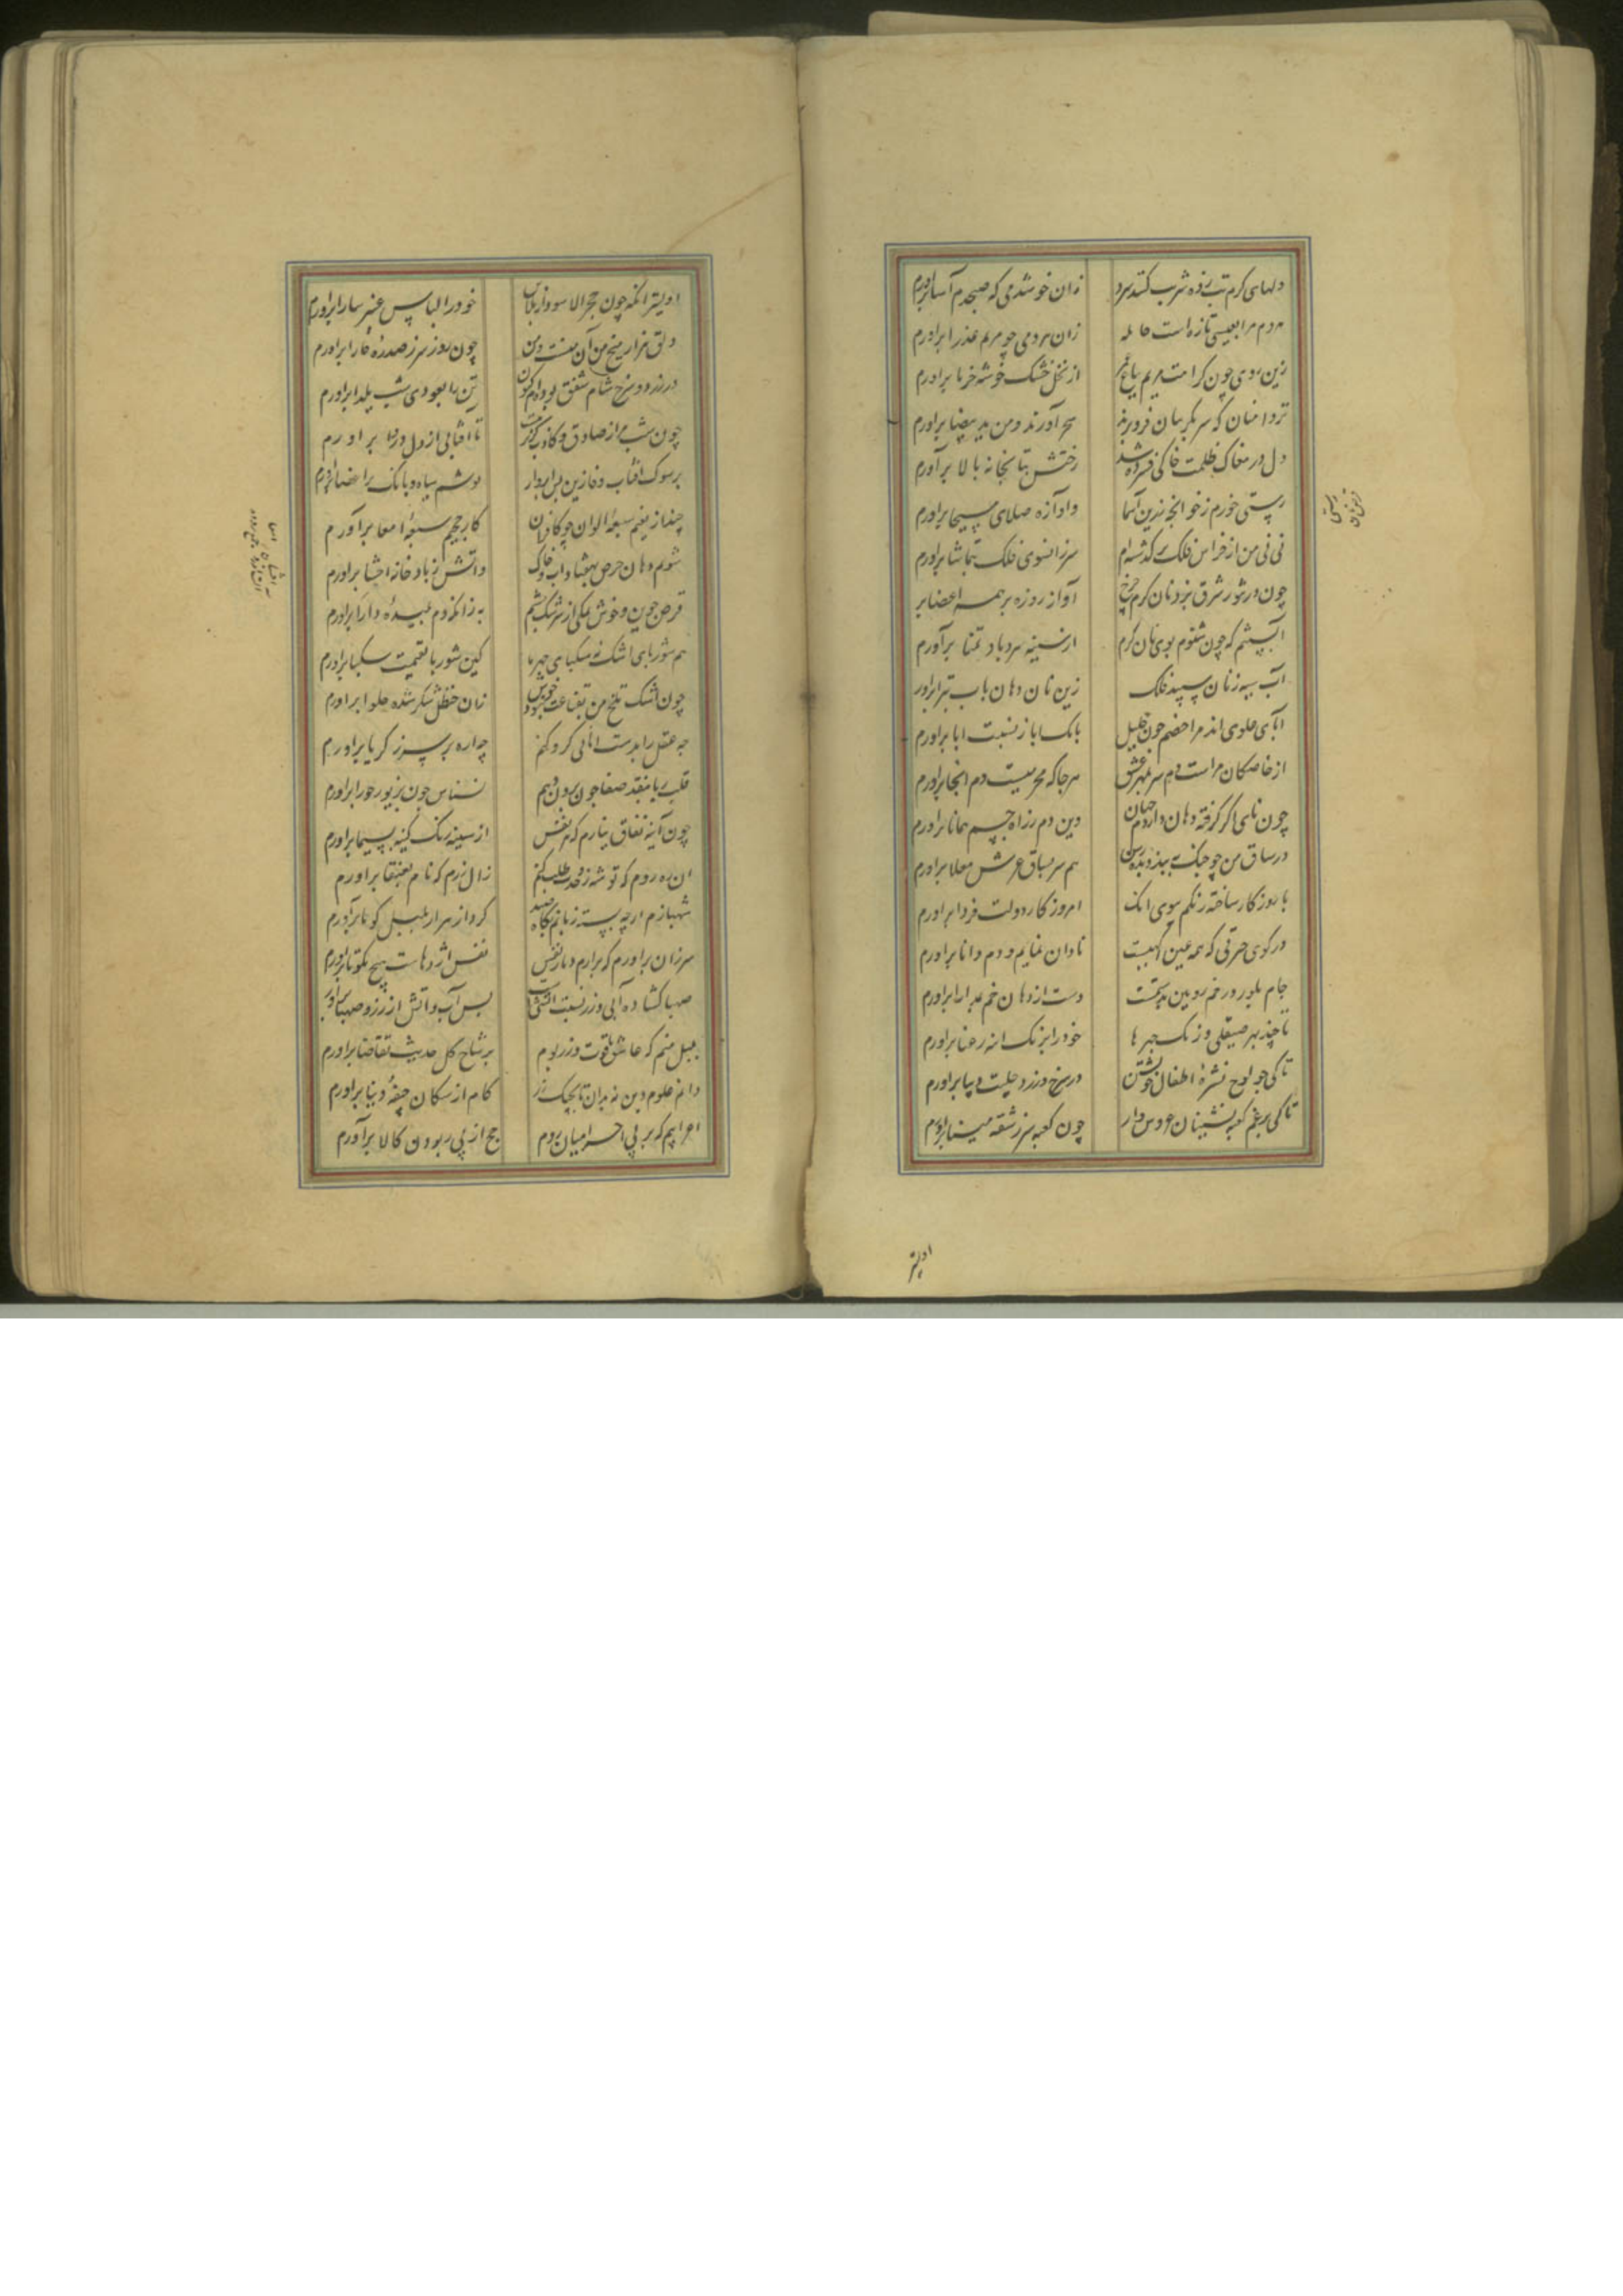 دلهای کرم تب زده شربت کنند سرد زان خوش دمی که صبحدم آسا برآورم
هر دم مرا بعیسی تازه است حامله زان هر دمی چو مریم عذرا برآورم
زین روی چون کرامت مریم بباغ عمر از نخل خشک خوشه خرما برآورم
تردامنان که سر بگریبان فرو برند سحر آورند و من ید بیضا برآورم
دل در مغاک ظلمت خاکی فسرده شد رختش بتابخانه بالا برآورم
رستی خورم ز خوانچه زرین آسما وآوازه صلای مسیحا برآورم
نی نی من از خراس فلک بر گذشته‌ام سر زانسوی فلک بتماشا برآورم
چون در تنور شرق پزد نان کرم چرخ آواز روزه بر همه اعضا بر
آبستنم که چون شنوم بوی نان کرم از سینه سرد باد تمنا برآورم
آب سیه ز نان سپید فلک زین نان دهان باب تبرا برآور
آبای علوی اند مرا خصم چون خلیل بانک ابا ز نسبت ابا برآورم
از خاصکان مراست دم سر بمهر عشق هر جا که محرمیست دم انجا برآورم
چون نای اکر کرفته دهان داردم جهان وین دم ز راه چشم همانا برآورم
در ساق من چو چنک ببندد بده رسن هم سر بساق عرش معلا برآورم
با روزکار ساخته رنکم ببوی انک امروز کار دولت فردا برآورم
در کوی حیرتی که همه عین اکهیست نادان نمایم و دم دانا برآورم
جام بلور در خم رویین بدستمست دست از دهان خم بمدارا برآورم
تا چند بهر صیقلی زنک چهرها خود را برنک اینه رعنا برآورم
تا کی چو لوح نشره اطفال خویشتن در سرخ و زرد حلیت دیبا برآورم
تا کی برغم کعبه نشینان عروس وار چون کعبه سر ز شقه مینا برآورم
اولیتر
اولیتر انکه چون حجر الاسود از پلاس خود را لباس عنبر سارا برآورم
دلق هزار میخ من آن منست و من چون روز سر ز صدره خارا برآورم
در زرد و سرخ شام شفق بوده‌ام کنون تن را بعودی شب یلدا برآورم
چون شب مرا ز صادق و کاذب کزیر نیست تا آفتابی از دل دروا برآورم
بر سوک آفتاب وفا زین پس ابروار پوشم سیاه و بانک بر اعضا برآورم
چند از نعیم سبعه الوان چو کافران کار جحیم سبعه امعا برآورم
شویم دهان حرص بهفتاد آب و خاک واتش ز باد خانه احشا برآورم
قرص جوین و خوش نمکی از سرشک چشم به زانکه دم بمیده دارا برآورم
هم شوربای اشک نه سکبای چهرها کین شوربا بقیمت سکبا برآورم
چون اشک تلخ من بقناعت خوش بود زان حنظل شکر شده حلوا برآورم
چه عقل را بدست امانی کرو کنم چه اره بر سر زکریا برآورم
قلب ریا بنقد صفا چون برون دهم نسناس چون بزیور حورا برآورم
چون آینه نفاق نیارم که هر نفس از سینه رنک کینه بسیما برآورم
آن ره روم که توشه ز وحدت طلب کنم زال زرم که نام بعنقا برآورم
شهبازم ارچه بسته زبانم بکاه صید کرد از هزار بلبل کویا برآورم
سر زان برآورم که برارم دمار نفس نفس اژدهاست هیچ مکو تا برآورم
صهبا کشاده آبی و زر بسته آتشی‌ست بس آب و آتش از زر و صهبا برآور
بلبل منم که عاشق یاقوت و زر بوم بر شاخ کل حدیث تقاضا برآورم
دانم علوم دین نه بدان تا بچنک زر کام از سکان جیفه دنیا برآورم
اعرابیم که بر پی احرامیان روم حج از پی ربودن کالا برآورم